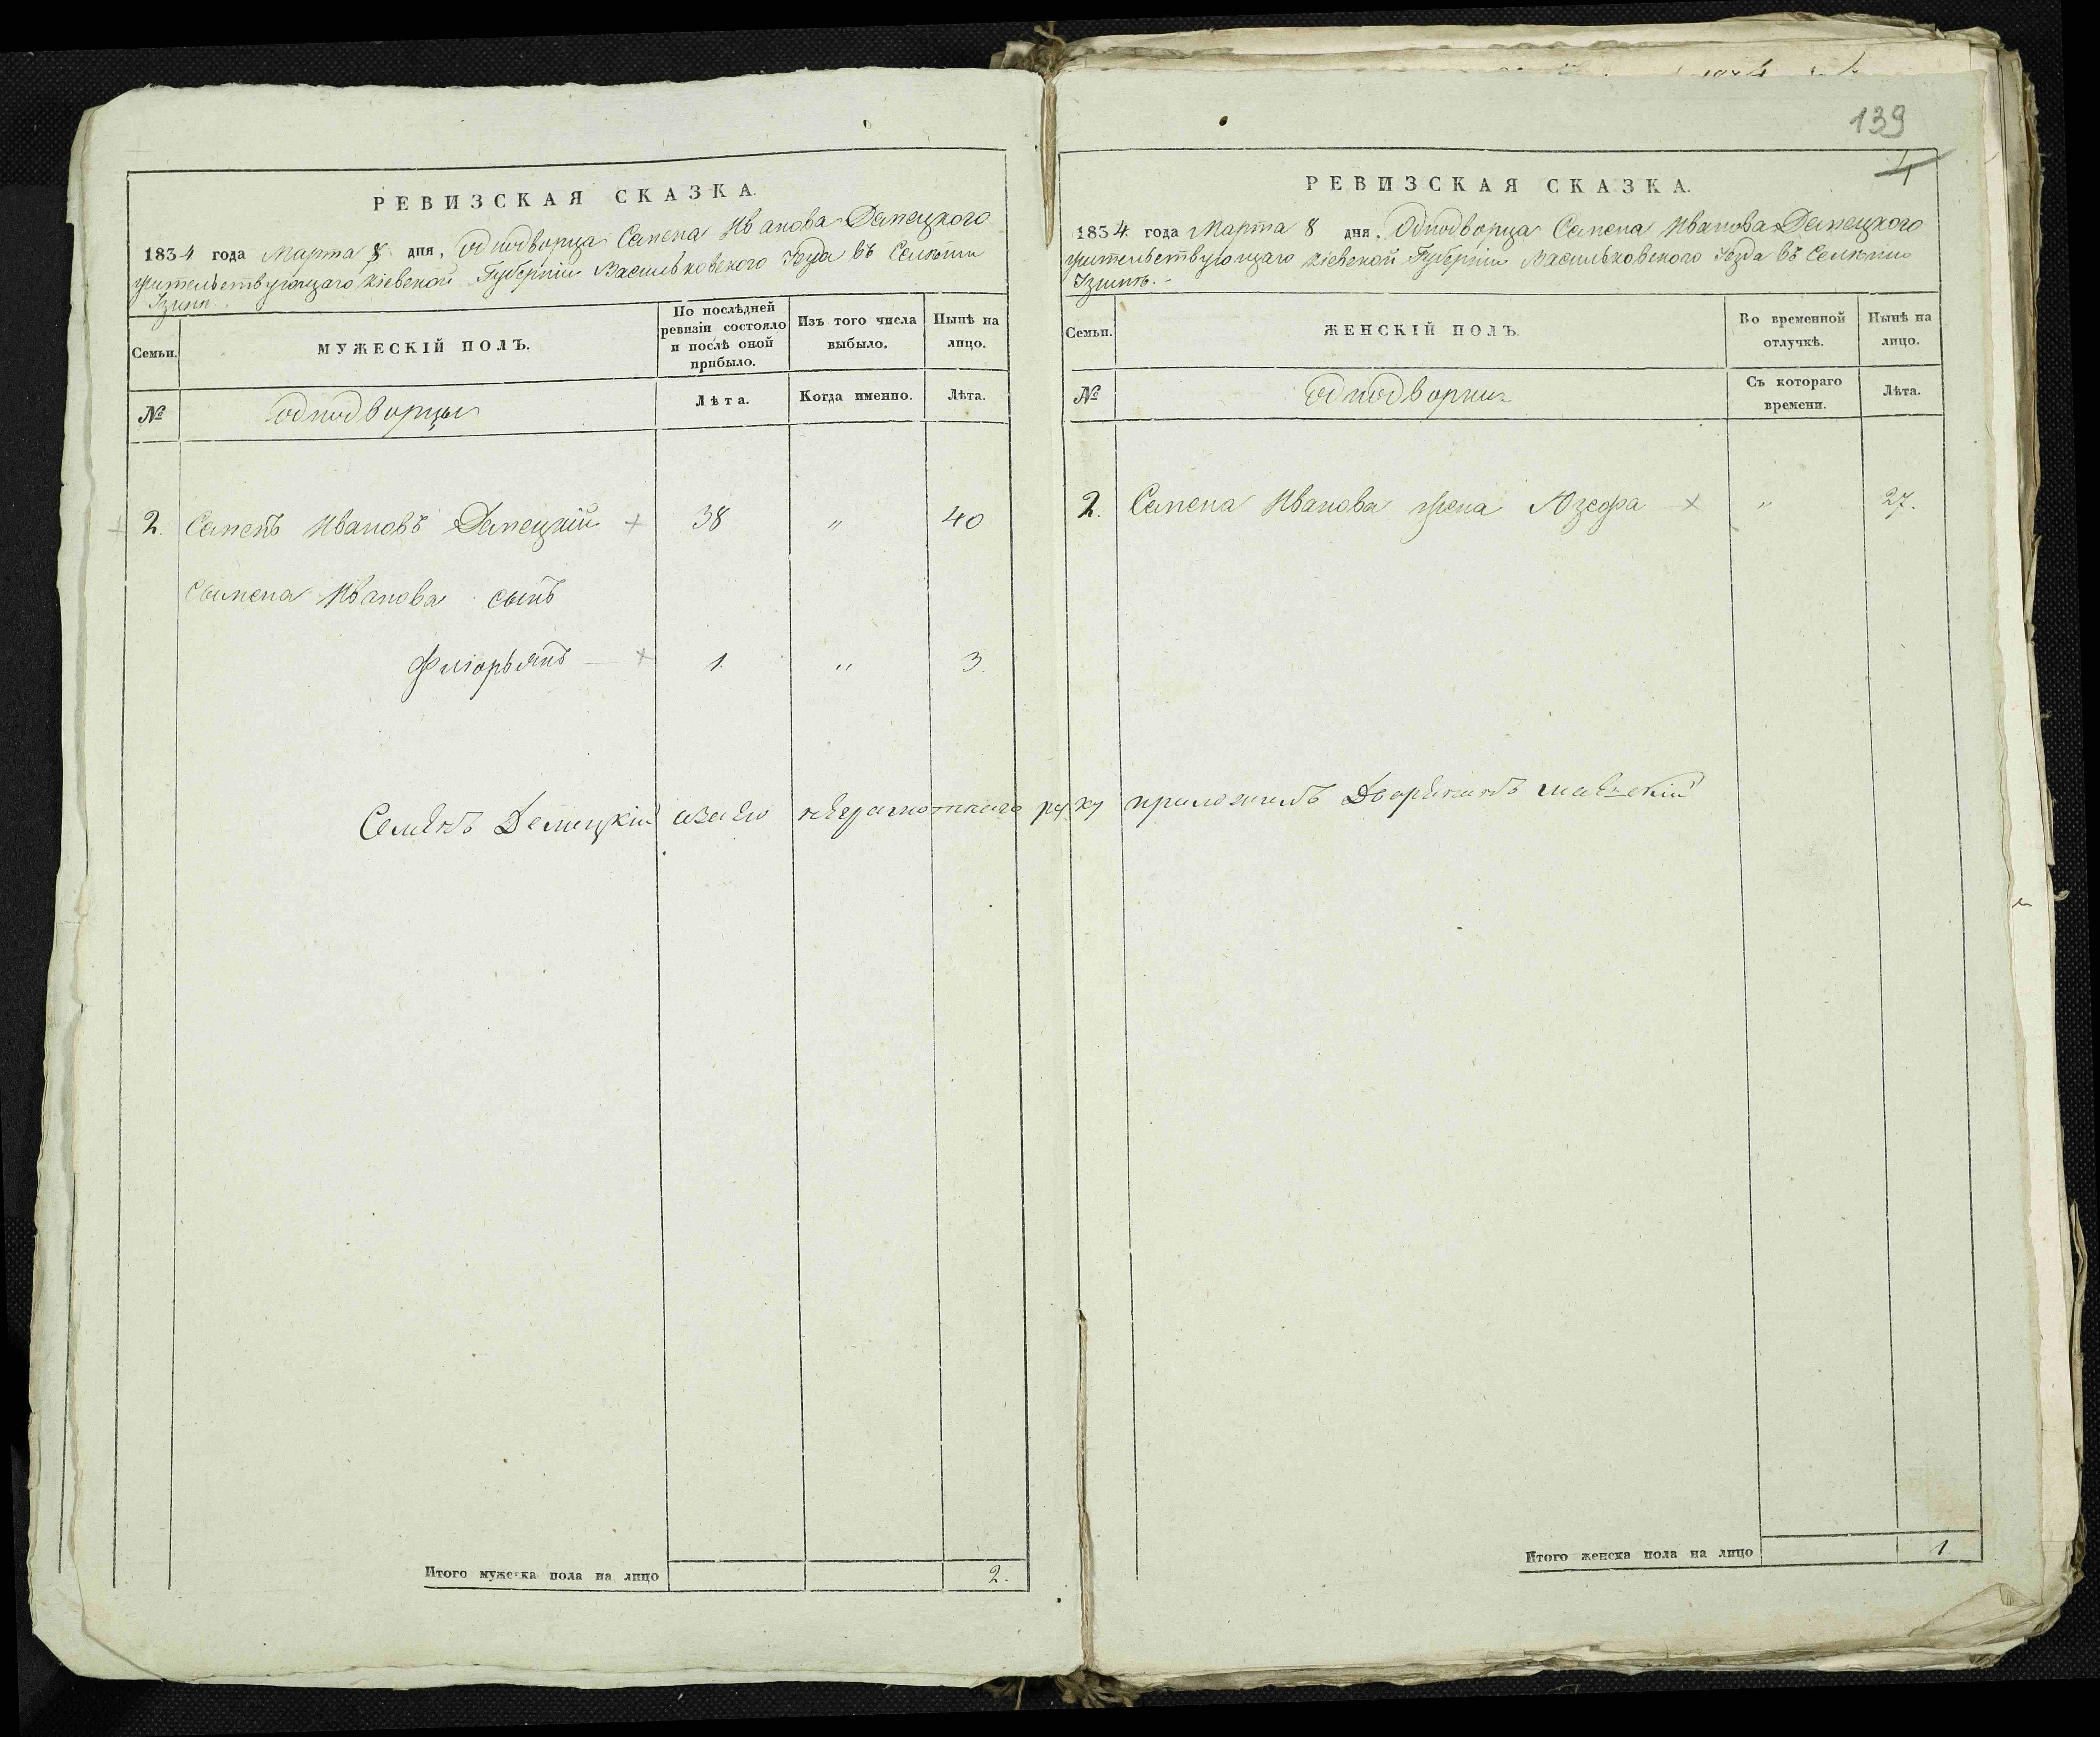 РЕВИЗСКАЯ СКАЗКА.
1834 года Марта 8 дня, Однодворца Семена Иванова Демецкого
жительствующаго Кіевской Губерніи Васильковского Уезда въ Селеніи
Семьи.
МУЖЕСКІЙ ПОЛЪ.
По послѣдней ревизіи состояло и послѣ оной прибыло.
Изъ того числа выбыло.
Нынѣ на лицо.
№
Однодворцы
Лѣта.
Когда именно.
Лѣта.
2. Семенъ Ивановъ Демецкій 38 " 40
Семена Иванова сынъ
Флюріянъ 1. " 3
Итого мужеска пола на лицо 2.
139
4
РЕВИЗСКАЯ СКАЗКА.
1834 года Марта 8 дня, Однодворца Семена Иванова Демецкого
жительствующаго Кіевской Губерніи Васильковского Уезда въ Селеніи
Семьи.
ЖЕНСКІЙ ПОЛЪ.
Во временной отлучкѣ.
Нынѣ на лицо.
№
Однодворки
Съ котораго времени.
Лѣта.
2. Семена Иванова жена Юзефа " 27.
Семенъ Демецкій а за его неграмотнаго руку приложилъ Дворянинъ
Итого женска пола на лицо 1.